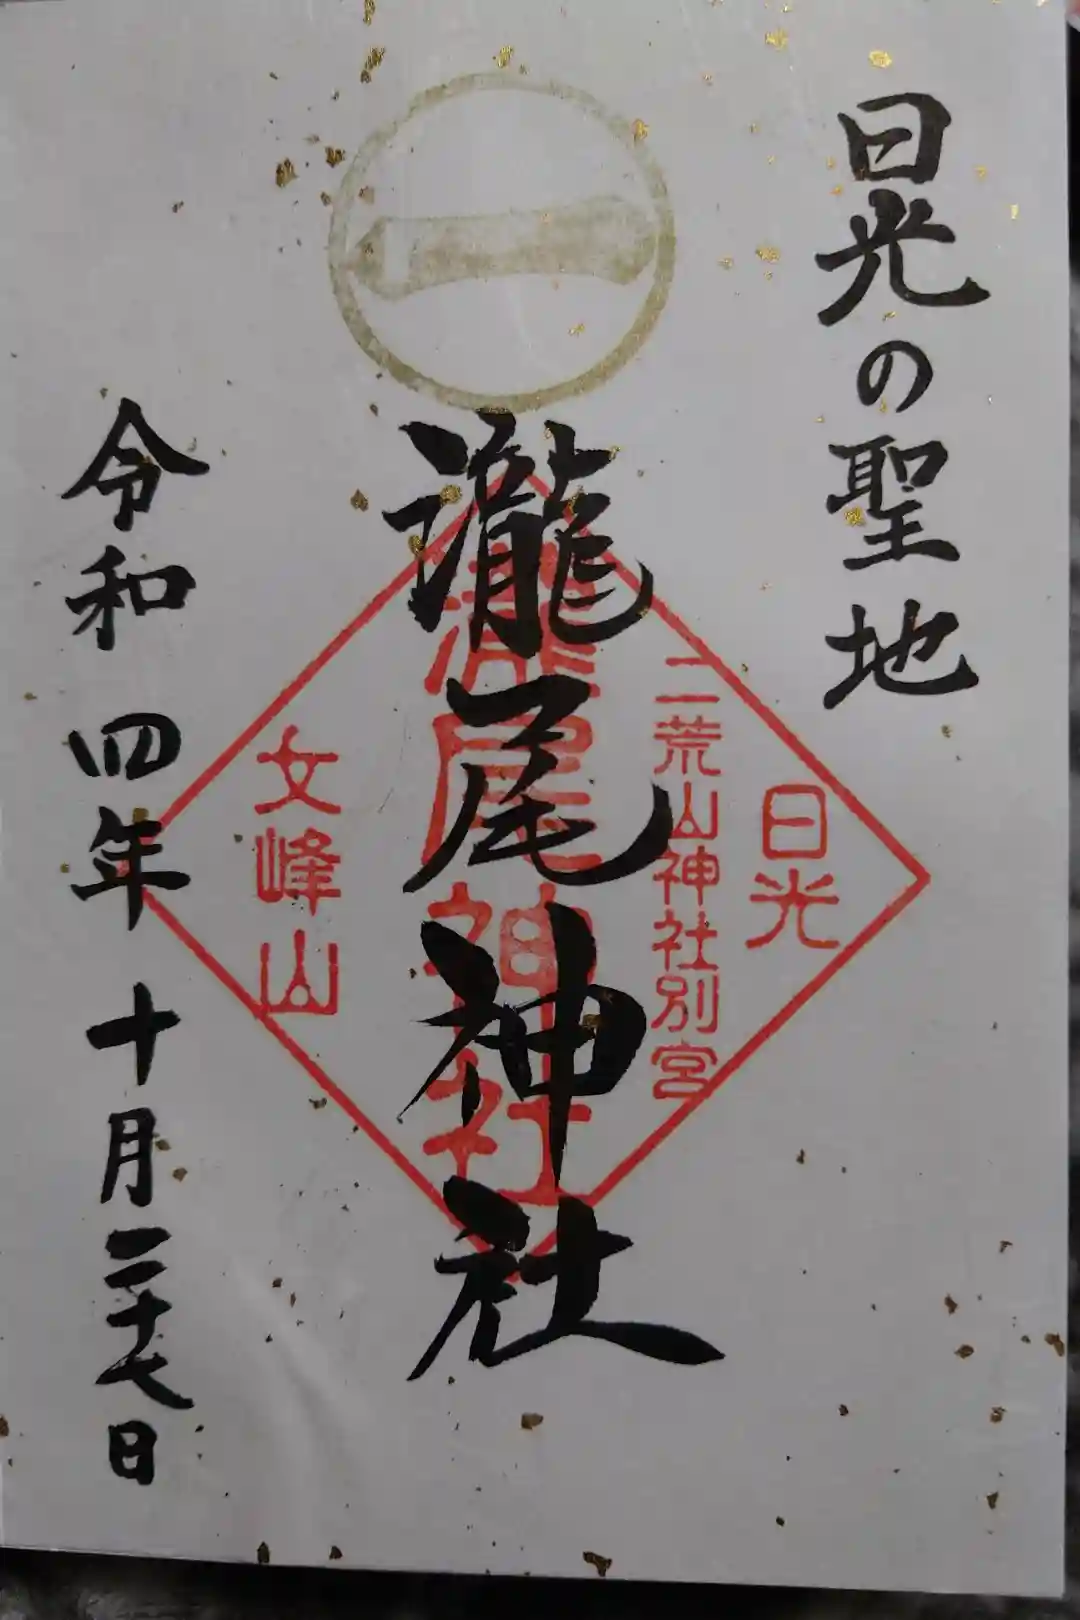 日光の聖地
一
瀧尾神社
日光
二荒山神社別宮
瀧尾神社
女峰山
令和四年十月二十七日